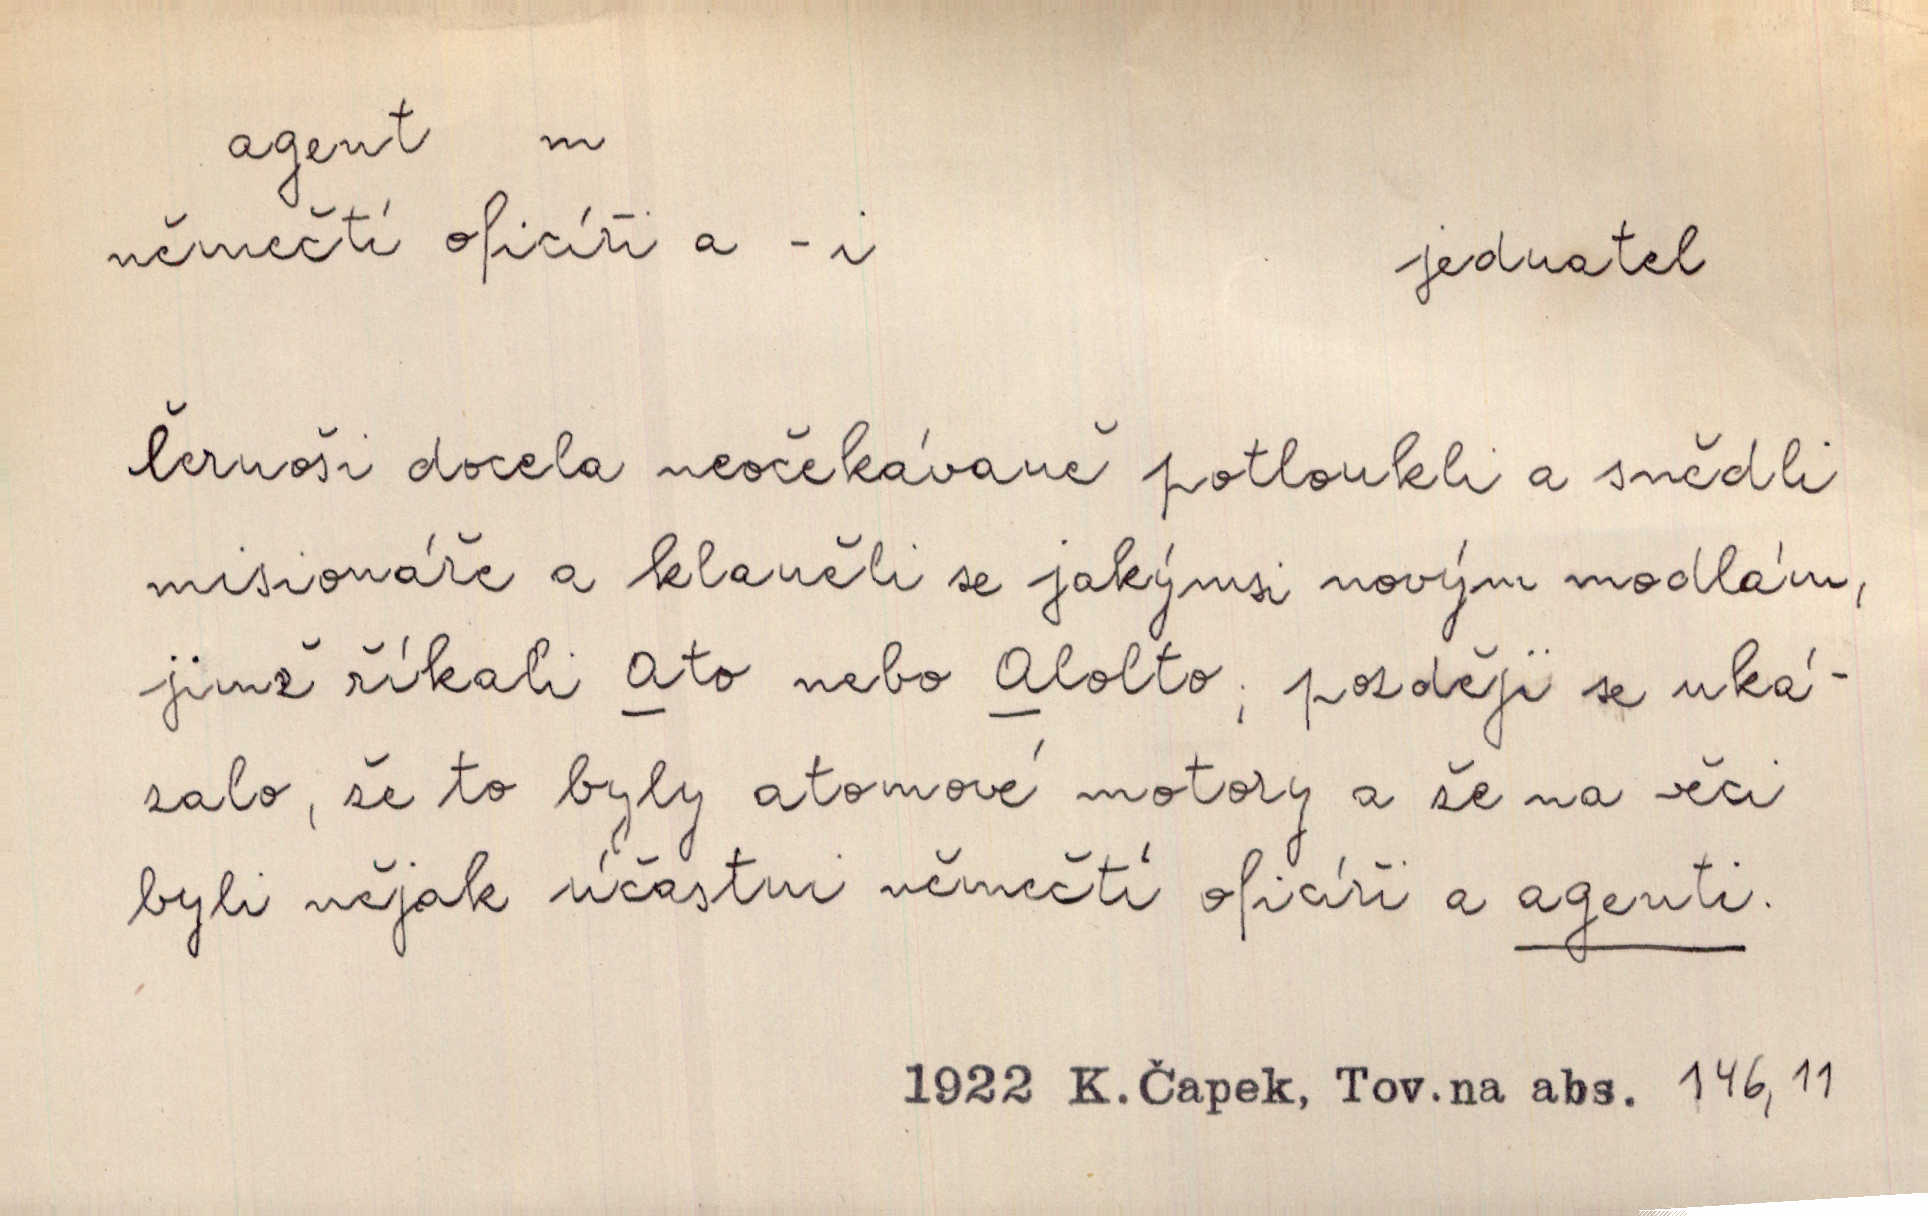 agent m
němečtí oficíři a -i jednatel
Černoši docela neočekávaně potloukli a snědli
misionáře a klaněli se jakýmsi novým modlám,
jimž říkali Ato nebo Alolto; později se uká-
zalo, že to byly atomové motory a že na věci
byli nějak účastni němečtí oficíři a agenti.
1922 K. Čapek, Tov. na abs. 146, 11